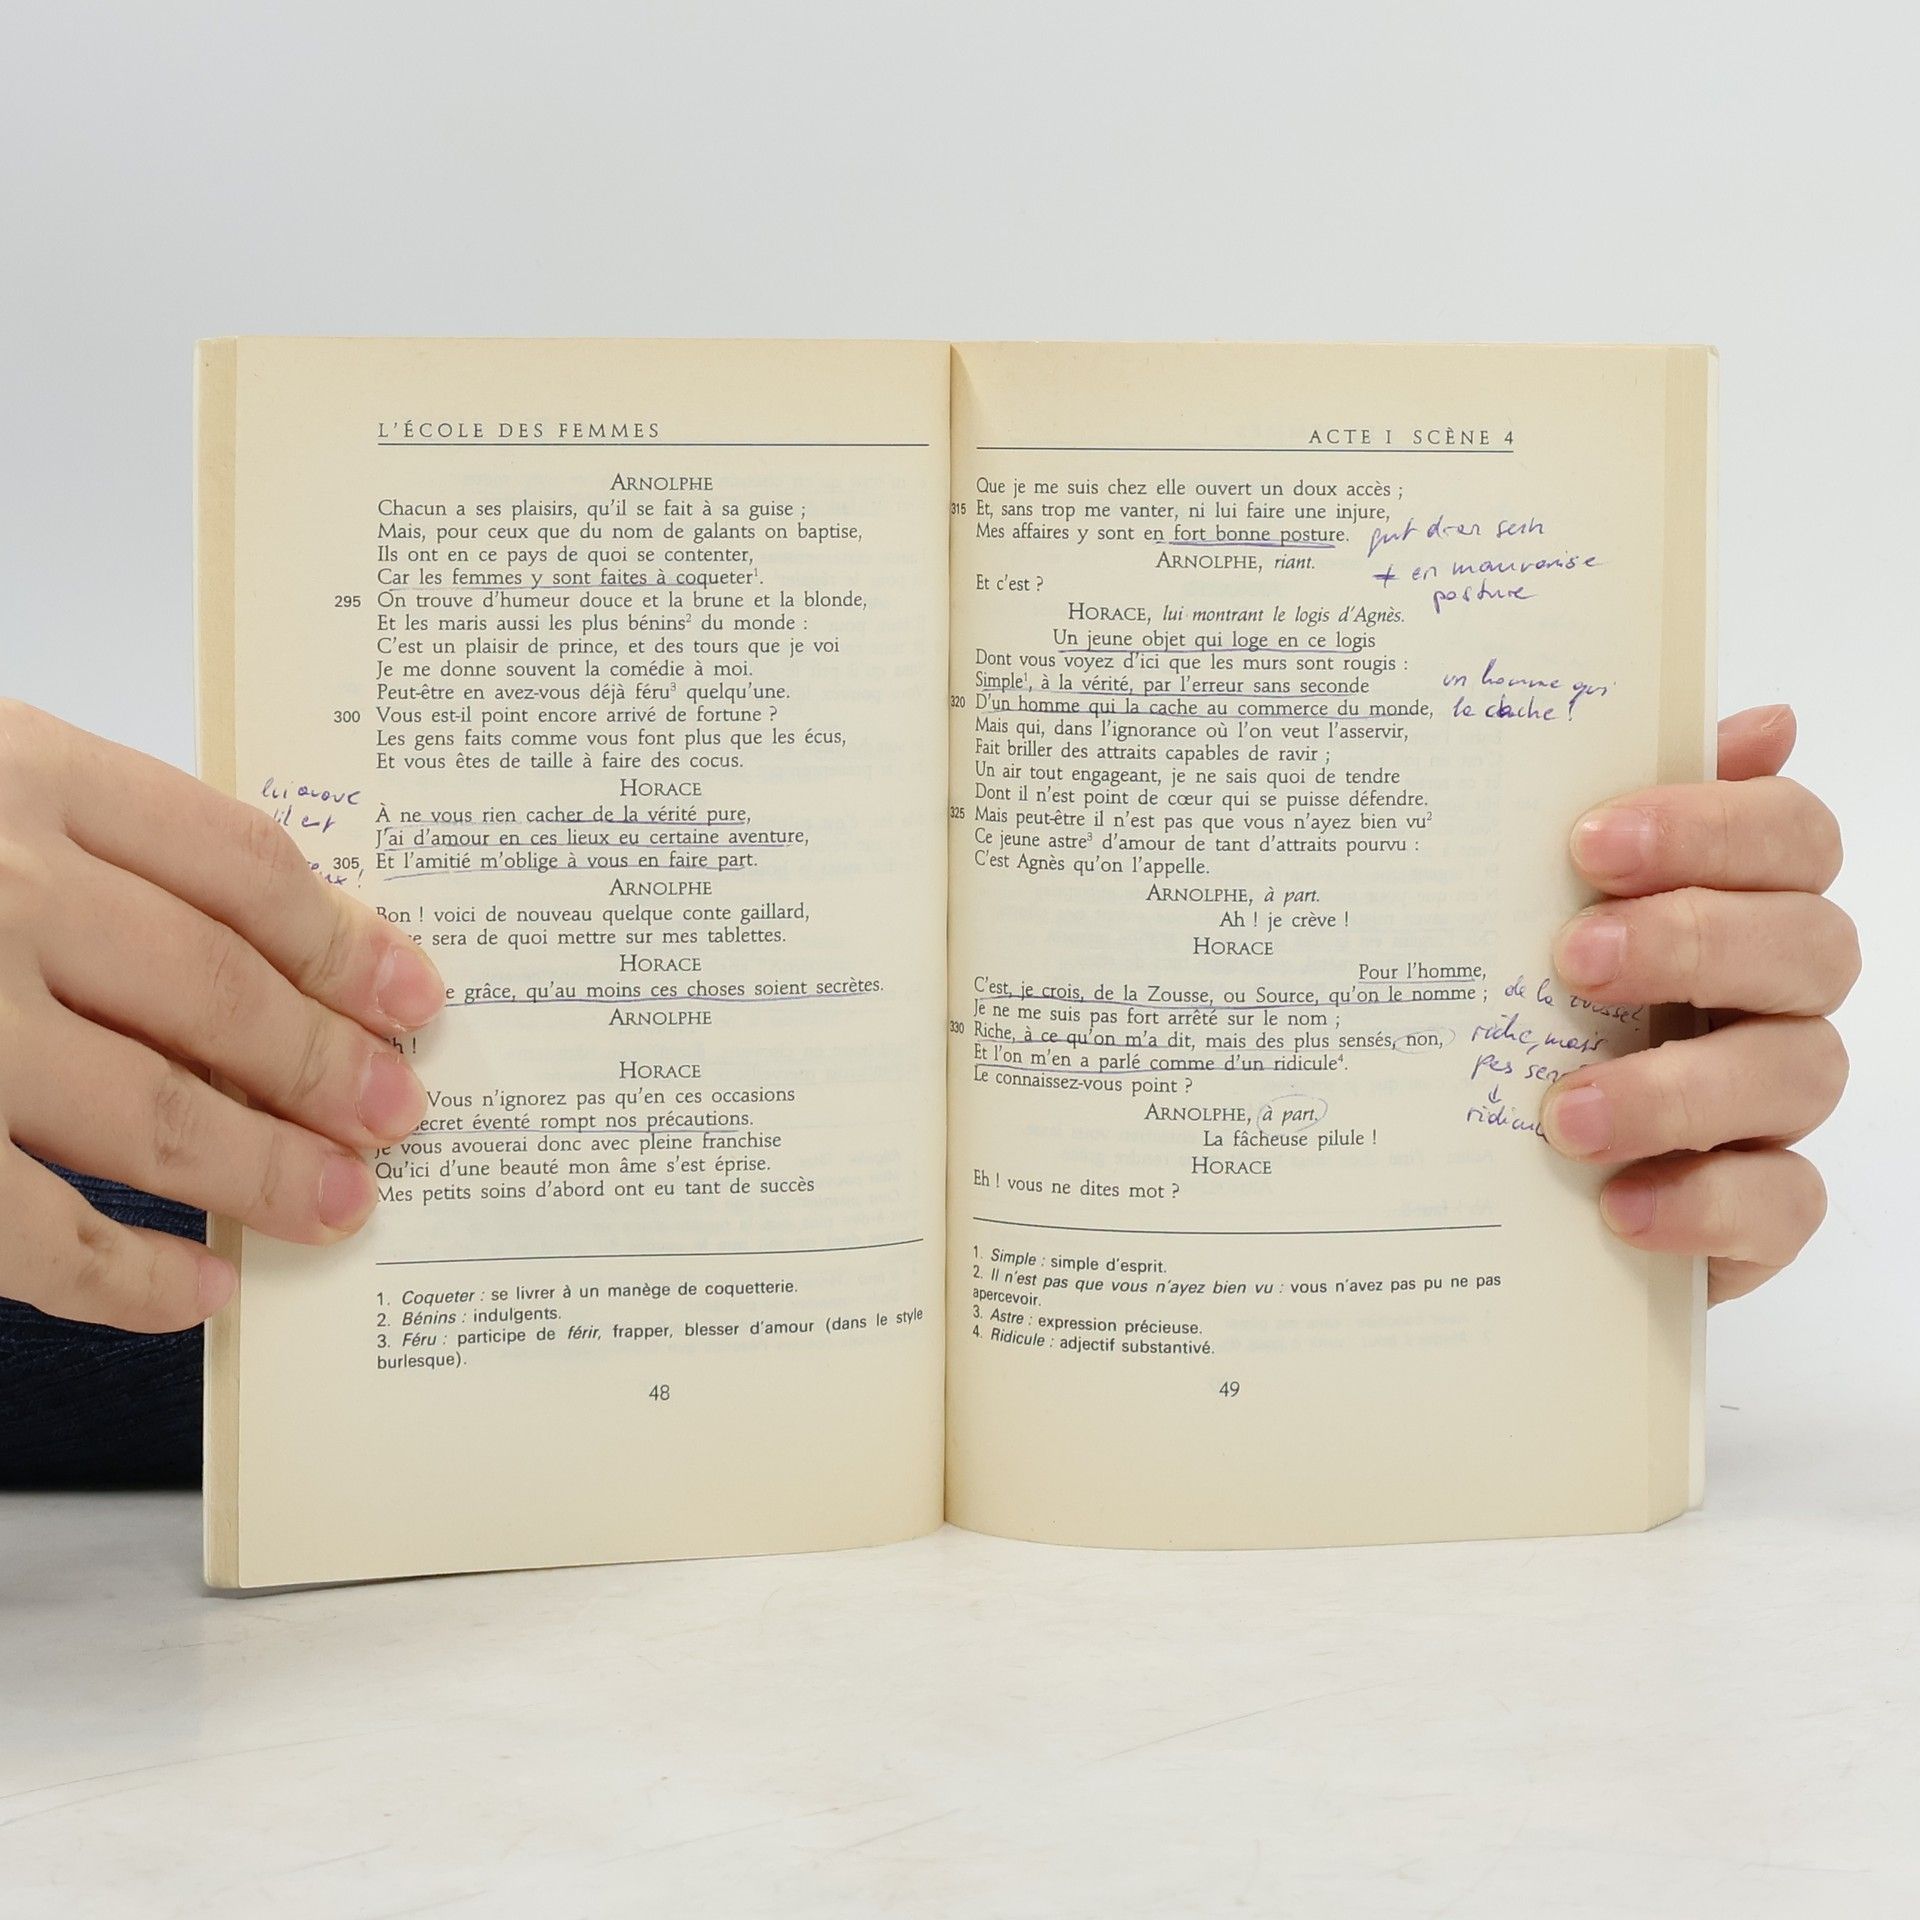 L'ÉCOLE DES FEMMES
ARNOLPHE
Chacun a ses plaisirs, qu'il se fait à sa guise ;
Mais, pour ceux que du nom de galants on baptise,
Ils ont en ce pays de quoi se contenter,
Car les femmes y sont faites à coqueter¹.
295 On trouve d'humeur douce et la brune et la blonde,
Et les maris aussi les plus bénins² du monde :
C'est un plaisir de prince, et des tours que je voi
Je me donne souvent la comédie à moi.
Peut-être en avez-vous déjà féru³ quelqu'une.
300 Vous est-il point encore arrivé de fortune ?
Les gens faits comme vous font plus que les écus,
Et vous êtes de taille à faire des cocus.
HORACE
lui avoue
À ne vous rien cacher de la vérité pure,
J'ai d'amour en ces lieux eu certaine aventure,
305 Et l'amitié m'oblige à vous en faire part.
ARNOLPHE
Bon ! voici de nouveau quelque conte gaillard,
sera de quoi mettre sur mes tablettes.
HORACE
grâce, qu'au moins ces choses soient secrètes.
ARNOLPHE
!
HORACE
Vous n'ignorez pas qu'en ces occasions
secret éventé rompt nos précautions.
Je vous avouerai donc avec pleine franchise
Qu'ici d'une beauté mon âme s'est éprise.
Mes petits soins d'abord ont eu tant de succès
1. Coqueter : se livrer à un manège de coquetterie.
2. Bénins : indulgents.
3. Féru : participe de férir, frapper, blesser d'amour (dans le style
burlesque).
48
ACTE I SCÈNE 4
Que je me suis chez elle ouvert un doux accès ;
315 Et, sans trop me vanter, ni lui faire une injure,
Mes affaires y sont en fort bonne posture.
≠ en mauvaise
posture
ARNOLPHE, riant.
Et c'est ?
HORACE, lui montrant le logis d'Agnès.
Un jeune objet qui loge en ce logis
Dont vous voyez d'ici que les murs sont rougis :
Simple¹, à la vérité, par l'erreur sans seconde
un homme qui
320 D'un homme qui la cache au commerce du monde,
la cache !
Mais qui, dans l'ignorance où l'on veut l'asservir,
Fait briller des attraits capables de ravir ;
Un air tout engageant, je ne sais quoi de tendre
Dont il n'est point de cœur qui se puisse défendre.
325 Mais peut-être il n'est pas que vous n'ayez bien vu²
Ce jeune astre³ d'amour de tant d'attraits pourvu :
C'est Agnès qu'on l'appelle.
ARNOLPHE, à part.
Ah ! je crève !
HORACE
Pour l'homme,
C'est, je crois, de la Zousse, ou Source, qu'on le nomme ;
de la
Je ne me suis pas fort arrêté sur le nom ;
330 Riche, à ce qu'on m'a dit, mais des plus sensés, non,
riche, mais
Et l'on m'en a parlé comme d'un ridicule⁴.
pas
Le connaissez-vous point ?
↓
ARNOLPHE, à part.
La fâcheuse pilule !
HORACE
Eh ! vous ne dites mot ?
1. Simple : simple d'esprit.
2. Il n'est pas que vous n'ayez bien vu : vous n'avez pas pu ne pas
apercevoir.
3. Astre : expression précieuse.
4. Ridicule : adjectif substantivé.
49